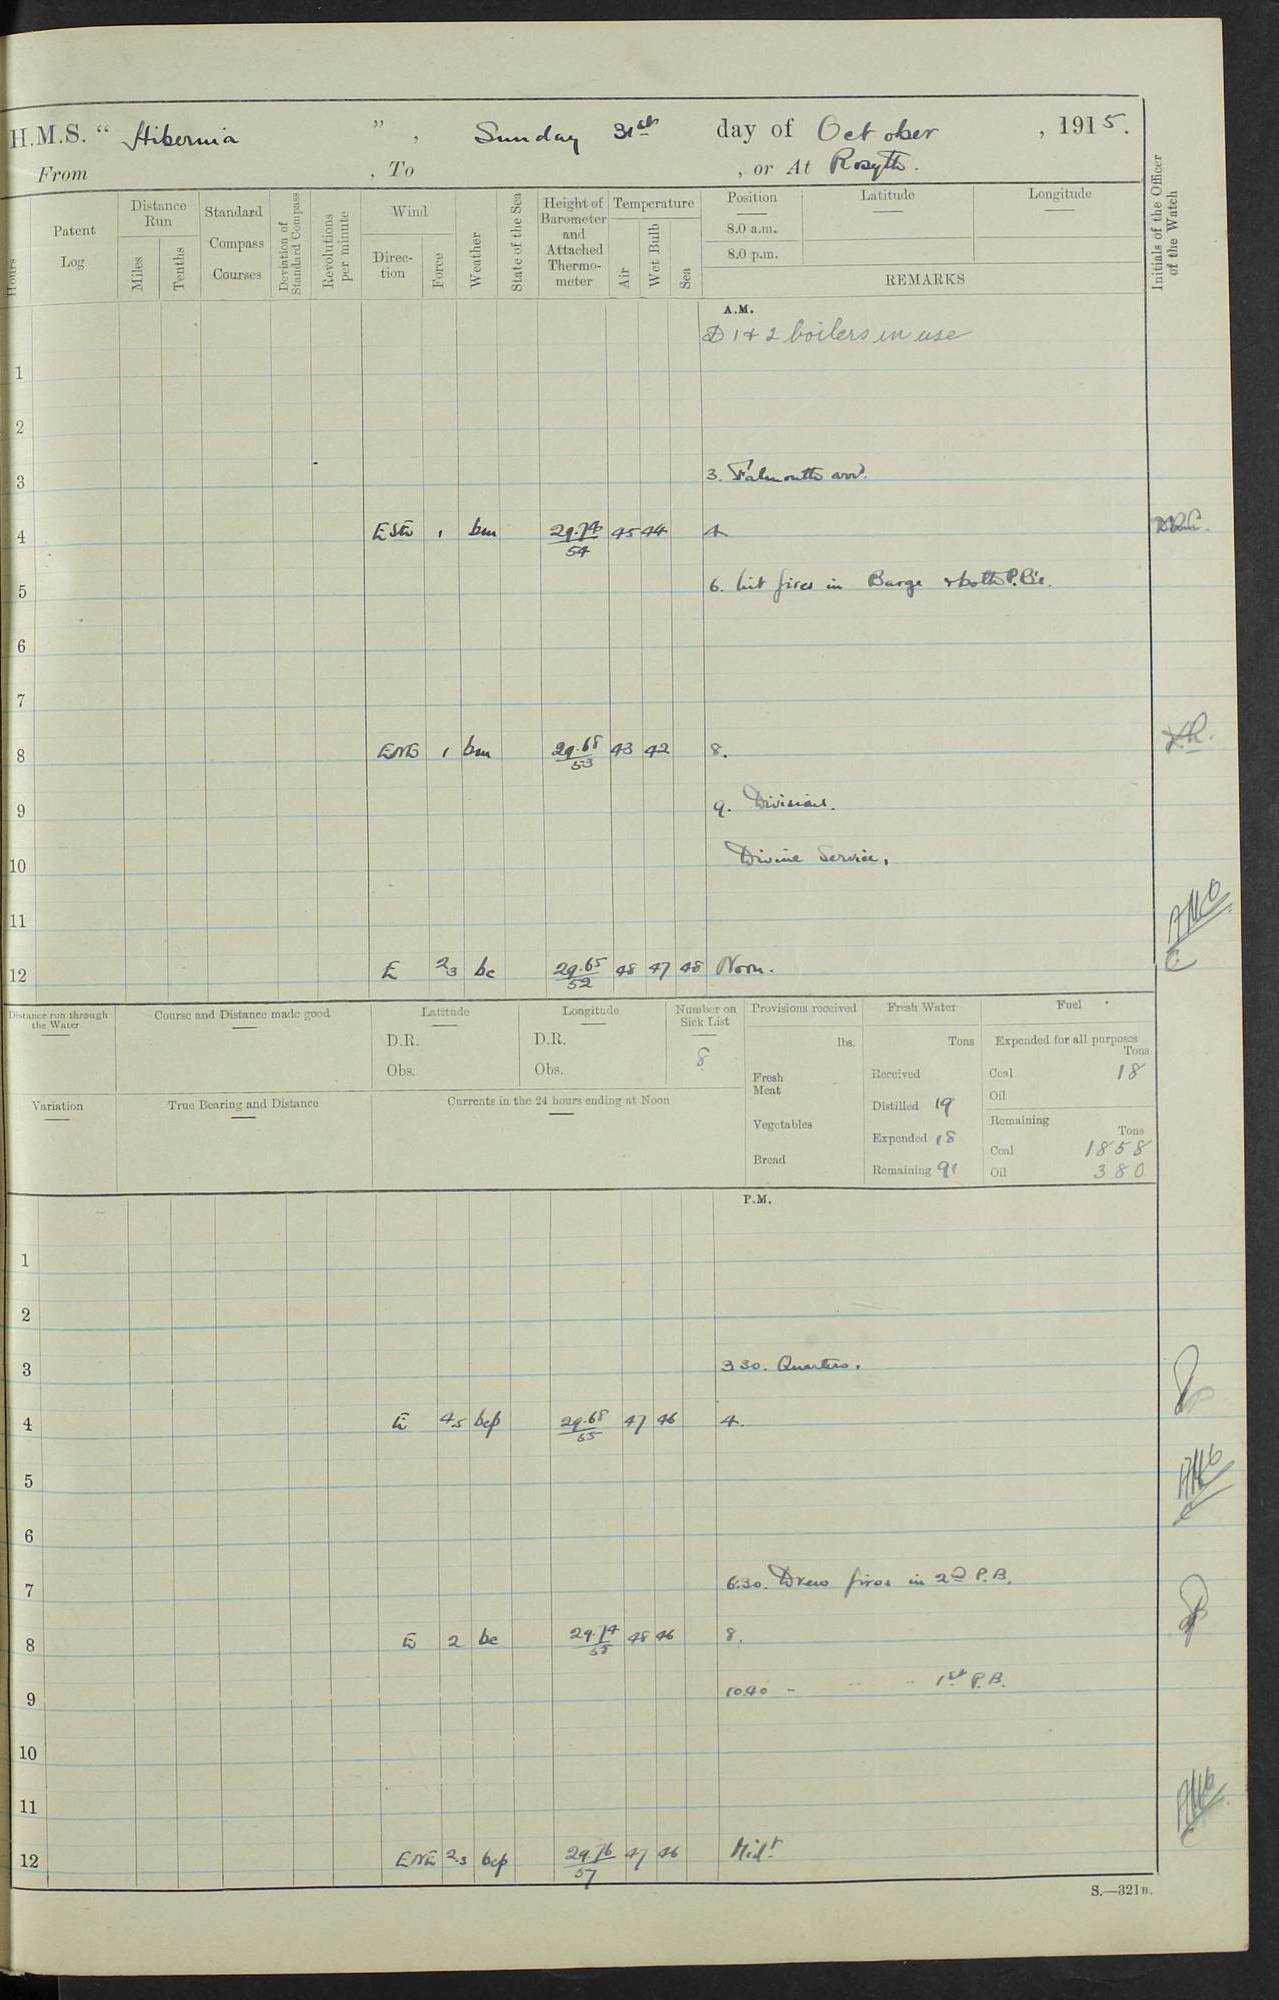 H.M.S. “ Hibernia ” , Sunday 31st day of October , 1915.
From , To , or At Rosyth.
Hours
Patent Log
Distance Run
Miles
Tenths
Standard Compass Courses
Deviation of Standard Compass
Revolutions per minute
Wind
Direc-tion
Force
Weather
State of the Sea
Height of Barometer and Attached Thermo-meter
Temperature
Air
Wet Bulb
Sea
Position
8.0 a.m.
8.0 p.m.
Latitude
Longitude
REMARKS
Initials of the Officer of the Watch
A.M.
1 & 2 boilers in use
1
2
3 3. Falmouth arrd.
4 1 bm 29.74 54 45 44 4
5 6. Lit fires in Barge & both P.Bs.
6
7
8 ENE 1 bm 29.68 53 43 42 8.
9 9. Divisions.
10 Divine Service.
11
12 E 2.3 bc 29.65 52 48 47 48 Noon.
Distance run through the Water
Course and Distance made good
Latitude
D.R.
Obs.
Longitude
D.R.
Obs.
Number on Sick List
8
Provisions received
lbs.
Fresh Meat
Vegetables
Bread
Fresh Water
Tons
Received
Distilled 19
Expended 18
Remaining 91
Fuel
Expended for all purposes
Tons
Coal 18
Oil
Remaining
Tons
Coal 1858
Oil 380
Variation
True Bearing and Distance
Currents in the 24 hours ending at Noon
P.M.
1
2
3 3.30. Quarters.
4 E 4.5 bcp 29.68 55 47 46 4.
5
6
7 6.30. Drew fires in 2nd P.B.
8 E 2 bc 29.74 58 48 46 8.
9 10.40 " " " 1st P.B.
10
11
12 ENE 2.3 bcp 29.76 57 47 46 Midt
S.—321B.